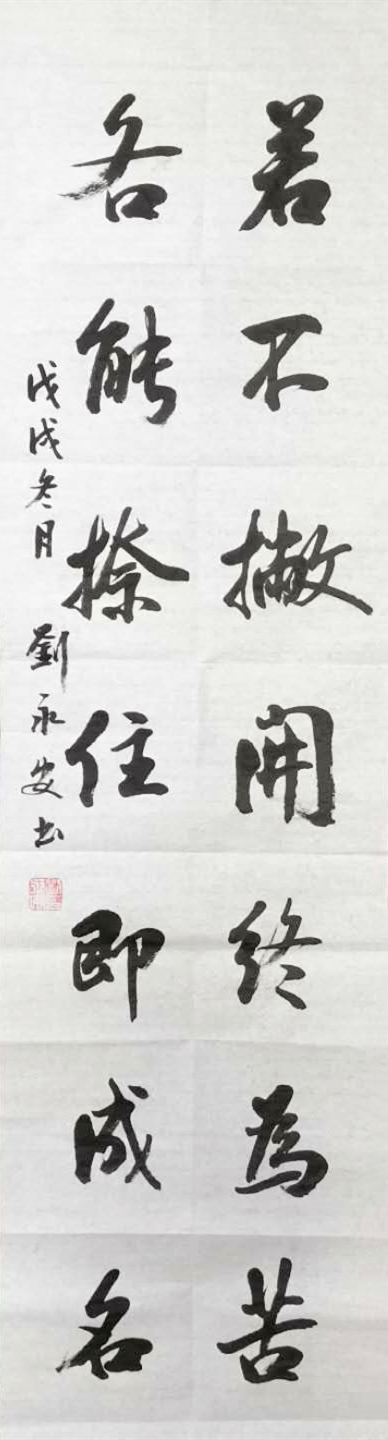 若不撇開終為苦
各能捺住即成名
戊戌冬月 劉永安书